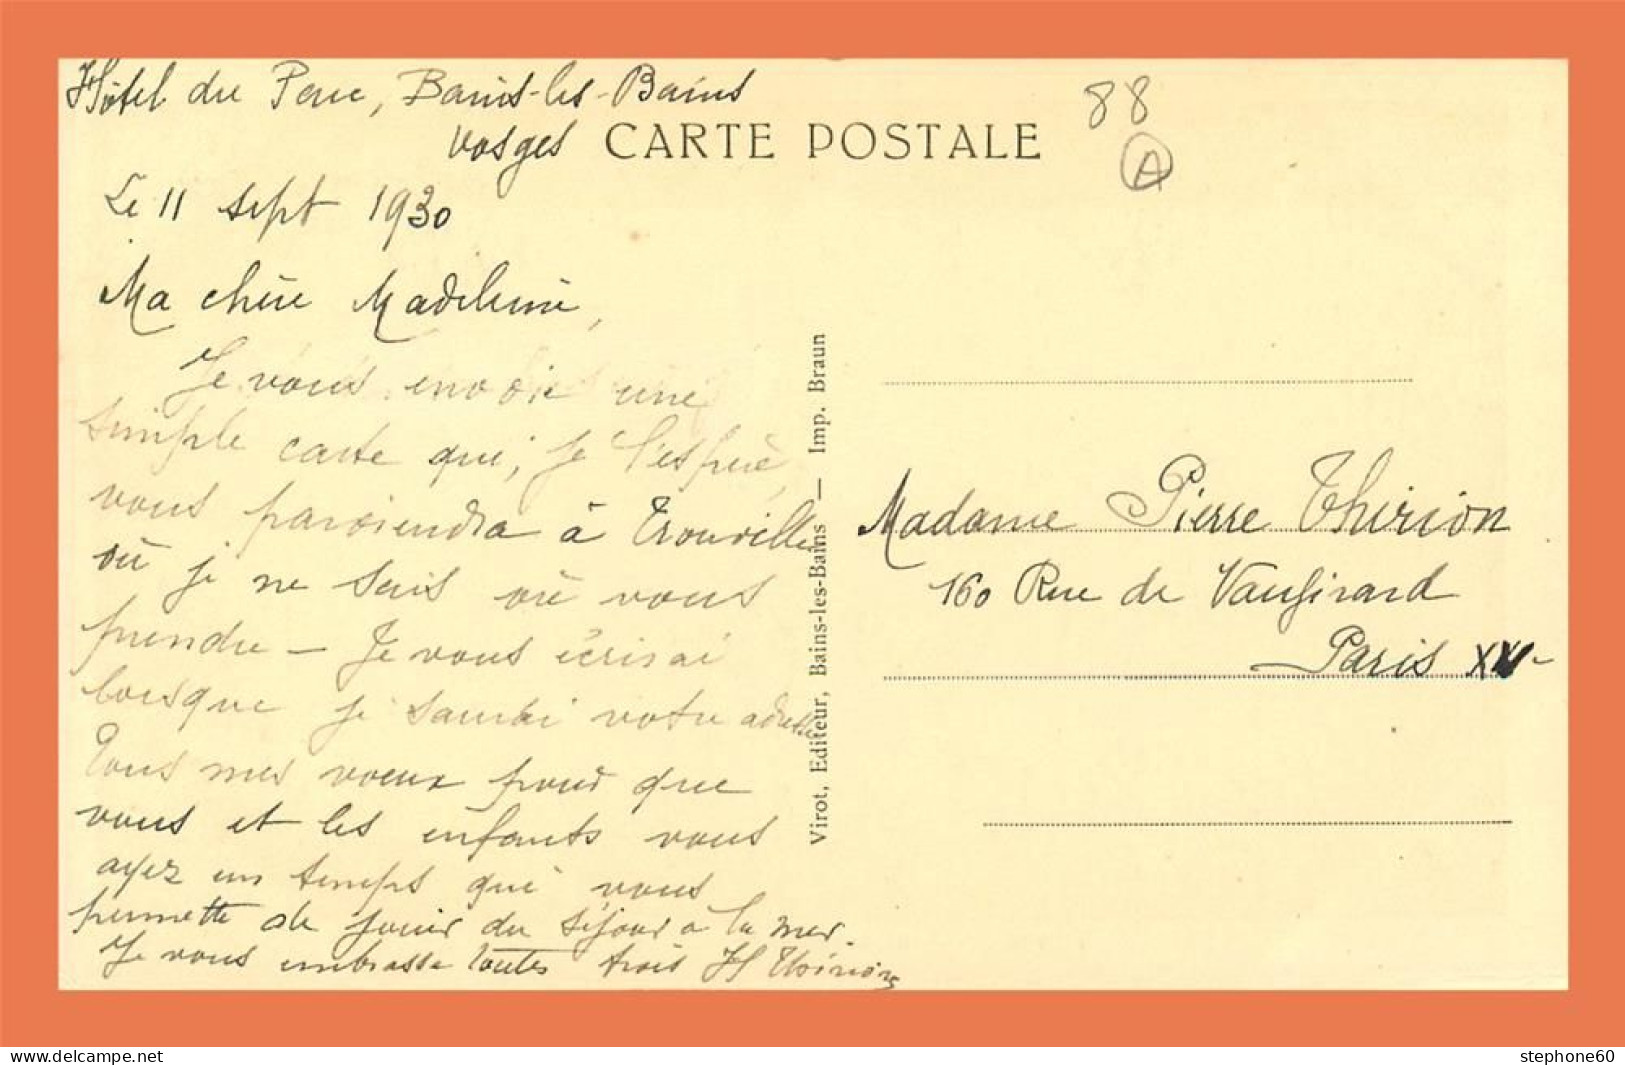 Hôtel du Parc, Bains-les-Bains
Vosges
CARTE POSTALE
88
A
Le 11 sept 1930
Ma chère Madeleine,
Je vous envoie une
simple carte qui, je l'espère,
vous parviendra à Trouville
où je ne sais où vous
prendre – Je vous écrirai
lorsque je saurai votre adresse
Tous mes voeux pour que
vous et les enfants vous
ayez un temps qui vous
permette de jouir du séjour à la mer.
Je vous embrasse toutes trois H Thirion
Virot, Editeur, Bains-les-Bains — Imp. Braun
Madame Pierre Thirion
160 Rue de Vaugirard
Paris XV
stephone60
www.delcampe.net